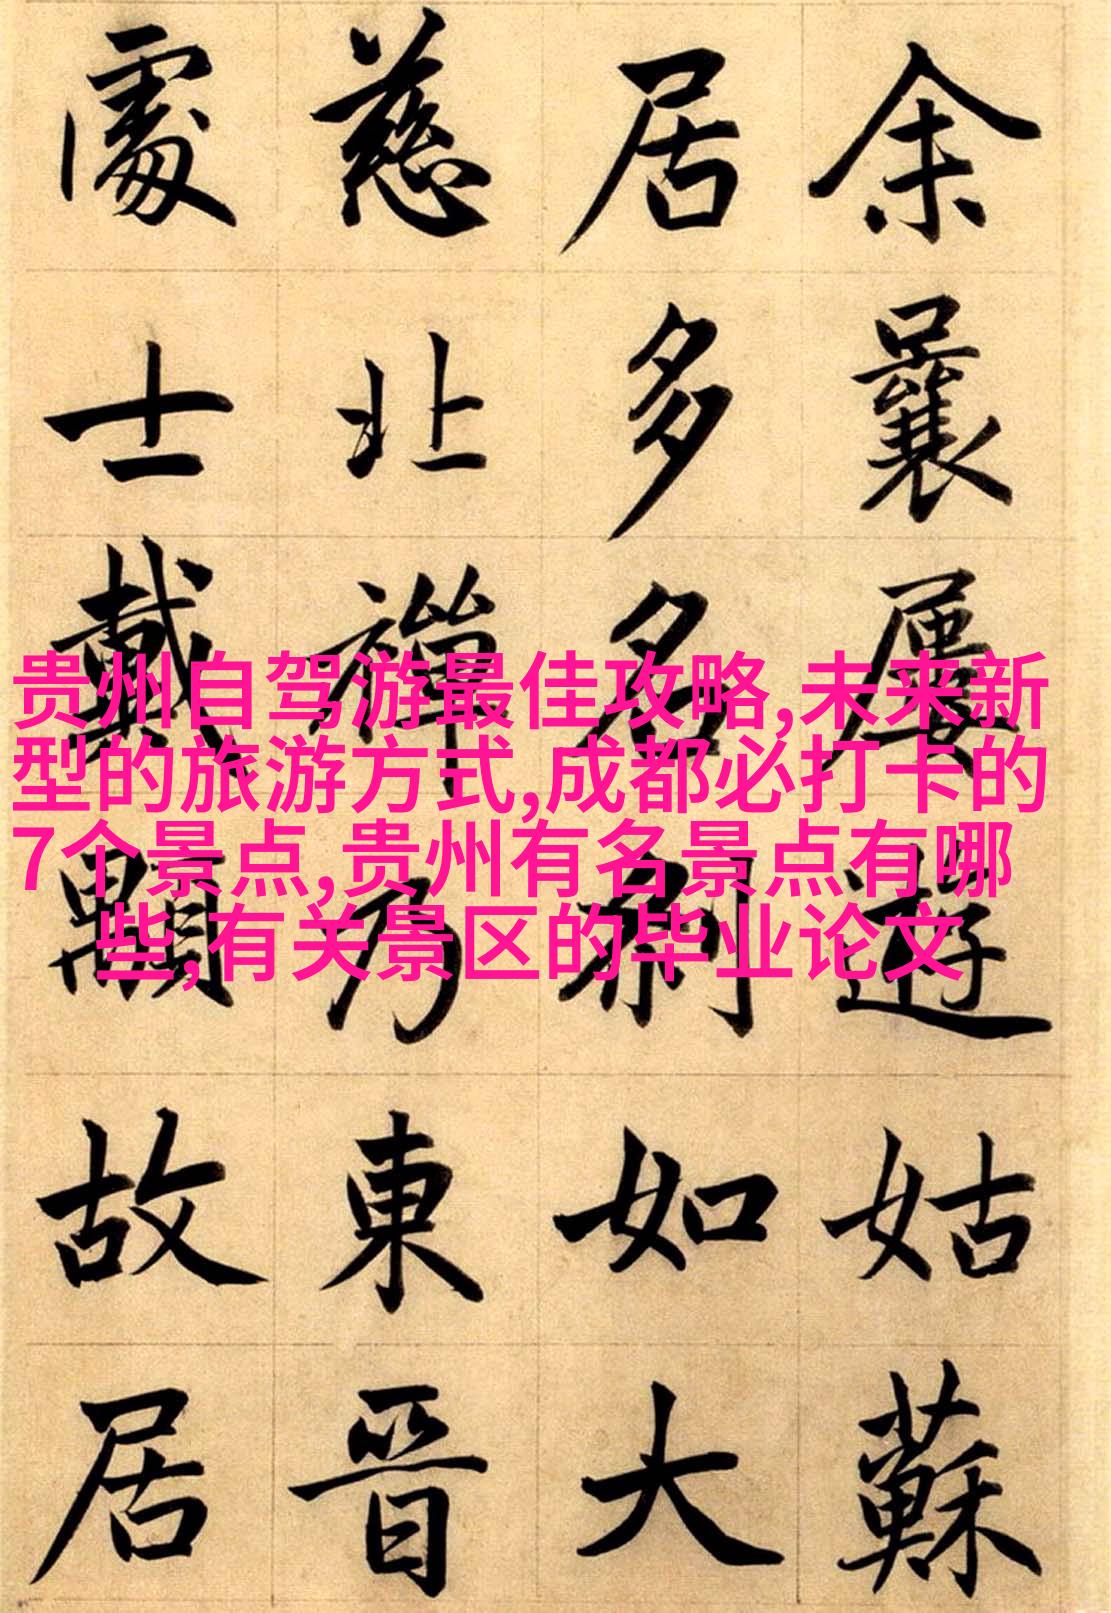 余曩屢遊姑蘇
居多名刹如大
慈北禪乃東晉
處士戴顒故居
贵州自驾游最佳攻略,未来新
型的旅游方式,成都必打卡的
7个景点,贵州有名景点有哪
些,有关景区的毕业论文